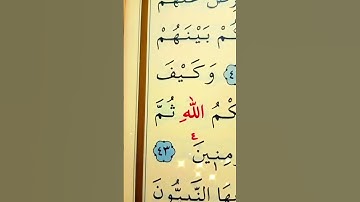 عَنْهُمْ
بَيْنَهُمْ
وَكَيْفَ
كْمُ اللّٰهِ ثُمَّ
٤
مِنٖينَ ٤٣
هَا النَّبِيُّونَ